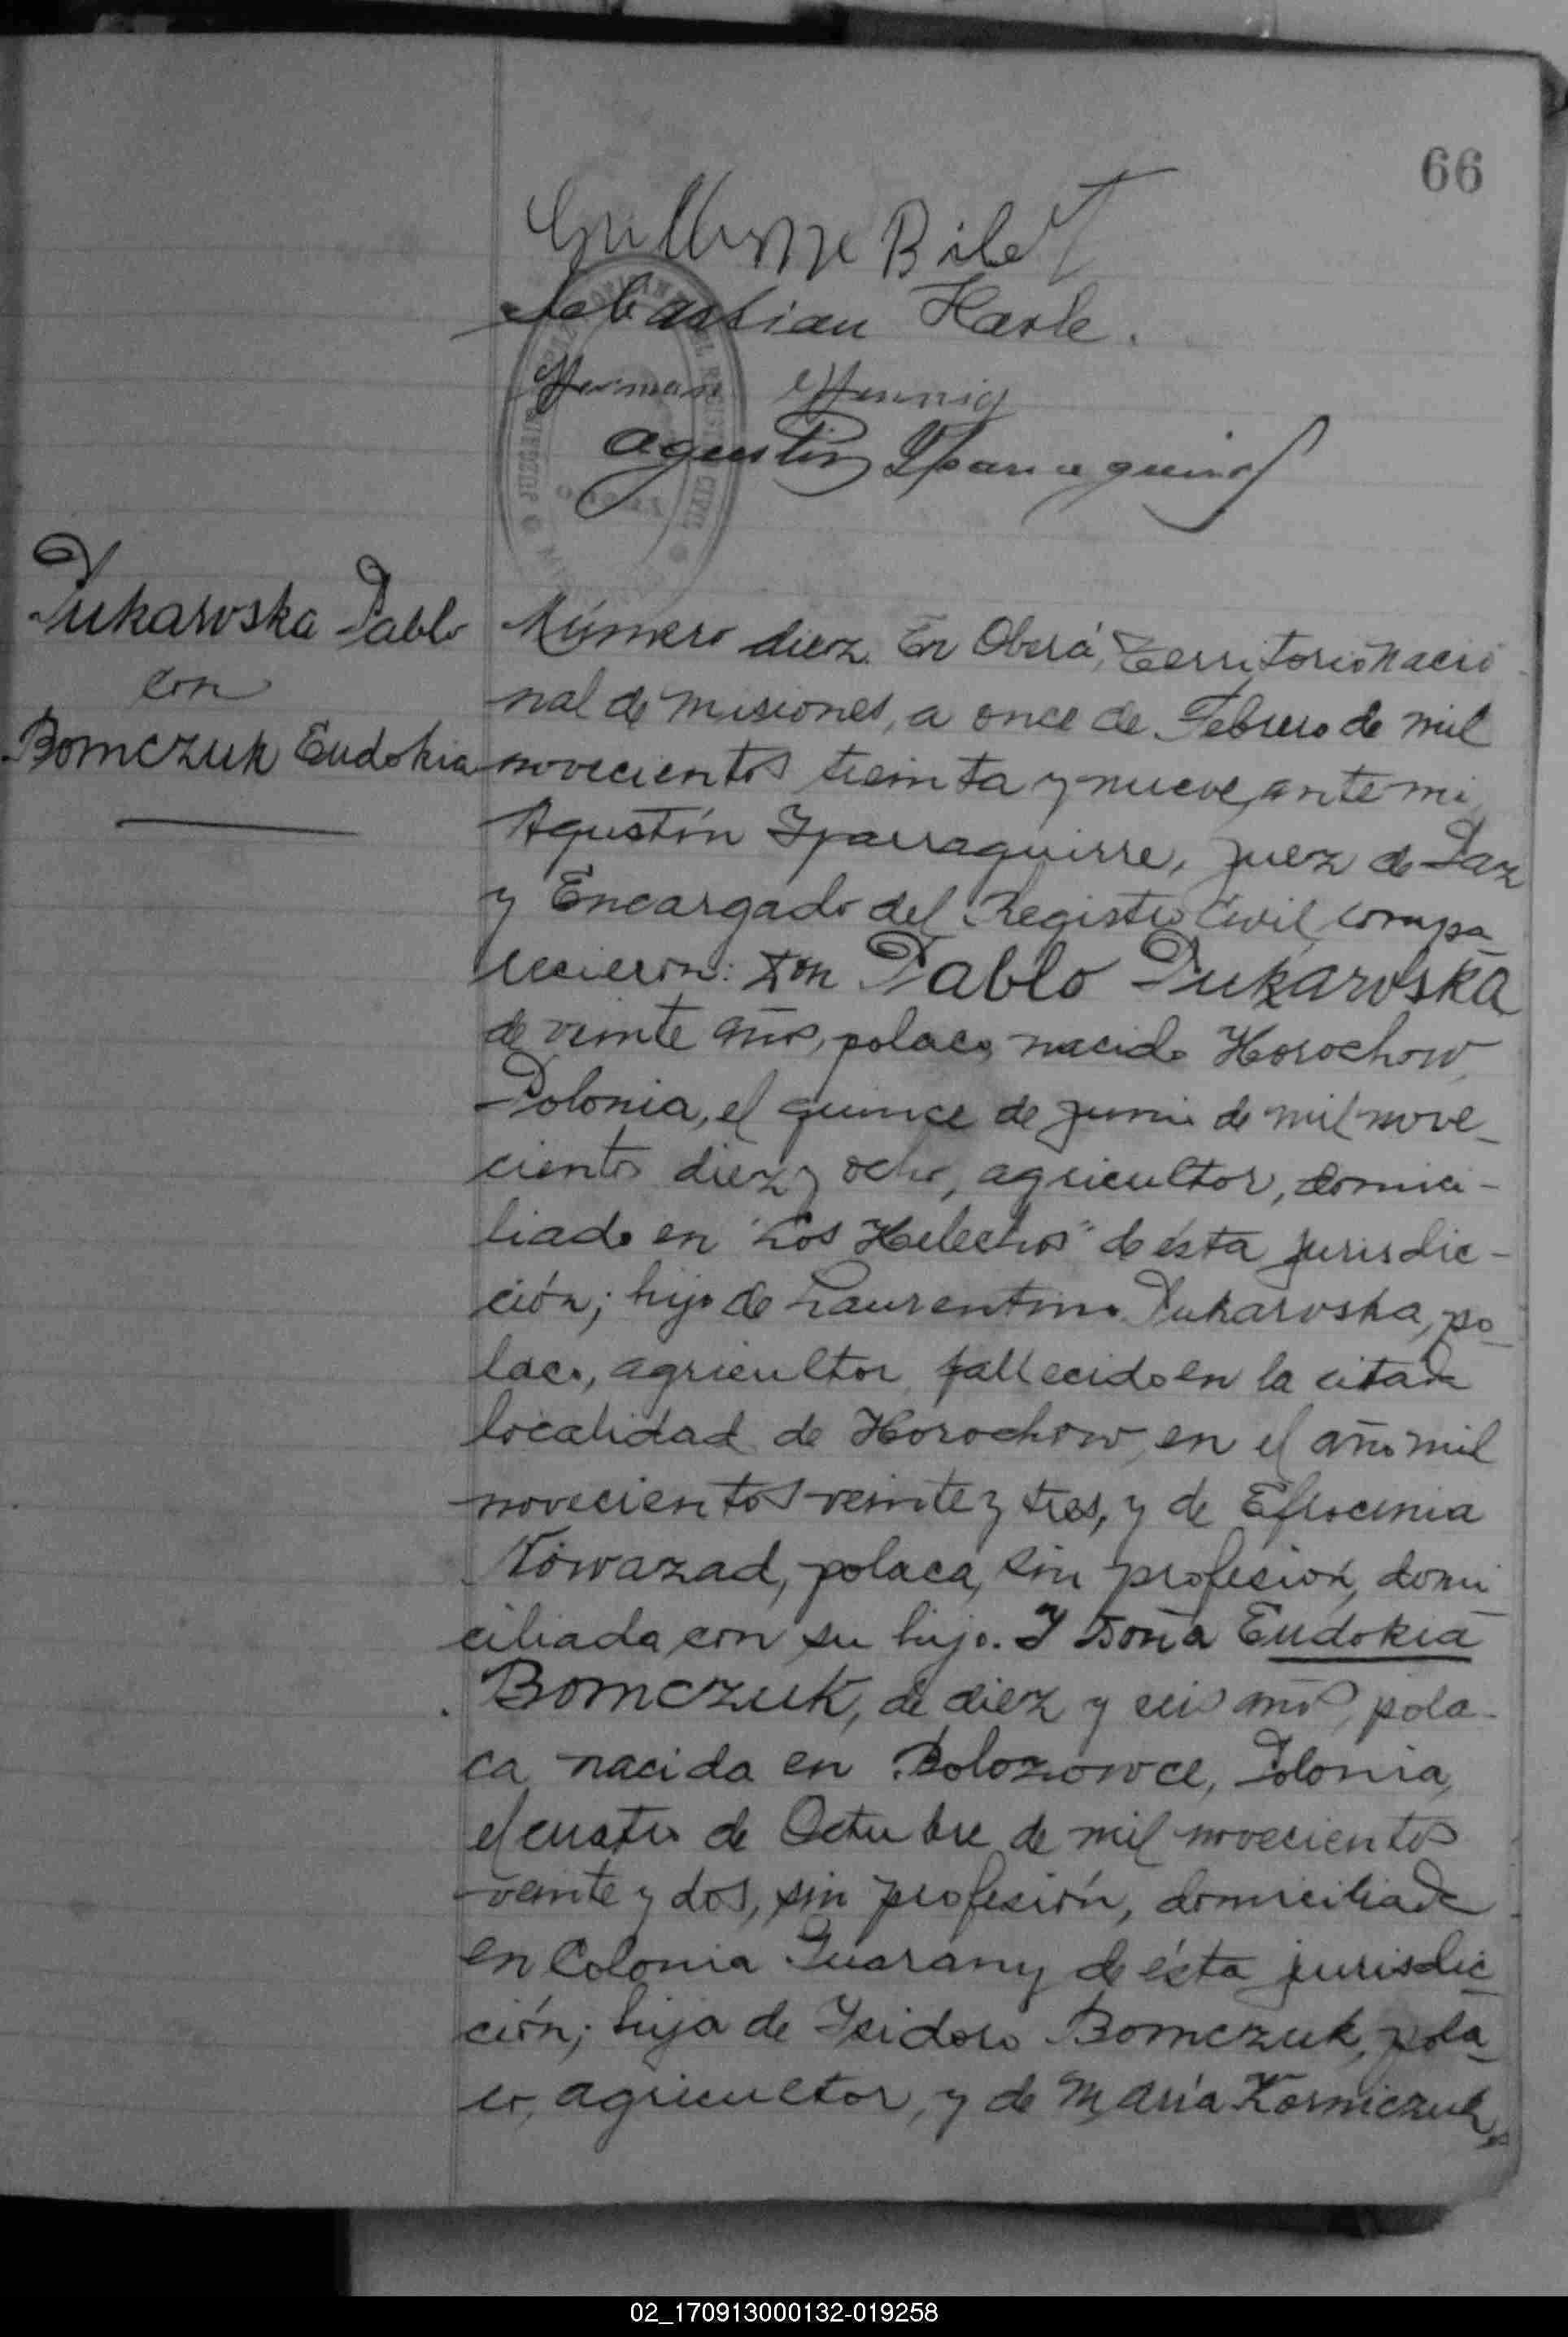 66
Guillermo Bilet
Sebastian Harle.
Herman Hennig
Agustin Yparraguirre
Pukarvska Pablo
con
Bomczuk Eudokia
Número diez. En Oberá, Territorio Nacio
nal de Misiones, a once de Febrero de mil
novecientos treinta y nueve, ante mi
Agustín Yparraguirre, Juez de Paz
y Encargado del Registro Civil, compa_
recieron: Don Pablo Pukarvska
de veinte años, polaco, nacido Horochow,
Polonia, el quince de junio de mil nove_
cientos diez y ocho, agricultor, domici-
liado en "Los Helechos" de ésta jurisdic-
ción; hijo de Laurentino Pukarvska, po_
laco, agricultor, fallecido en la citada
localidad de Horochow, en el año mil
novecientos veinte y tres, y de Efrocinia
Kowazad, polaca, sin profesión, domi_
ciliada con su hijo. Y Doña Eudokia
Bomczuk, de diez y seis años, pola-
ca, nacida en Bolozowce, Polonia,
el cuatro de Octubre de mil novecientos
veinte y dos, sin profesión, domiciliada
en Colonia Guarany de ésta jurisdic_
ción; hija de Ysidoro Bomczuk, pola_
co, agricultor, y de María Korniczuk,
02_170913000132-019258